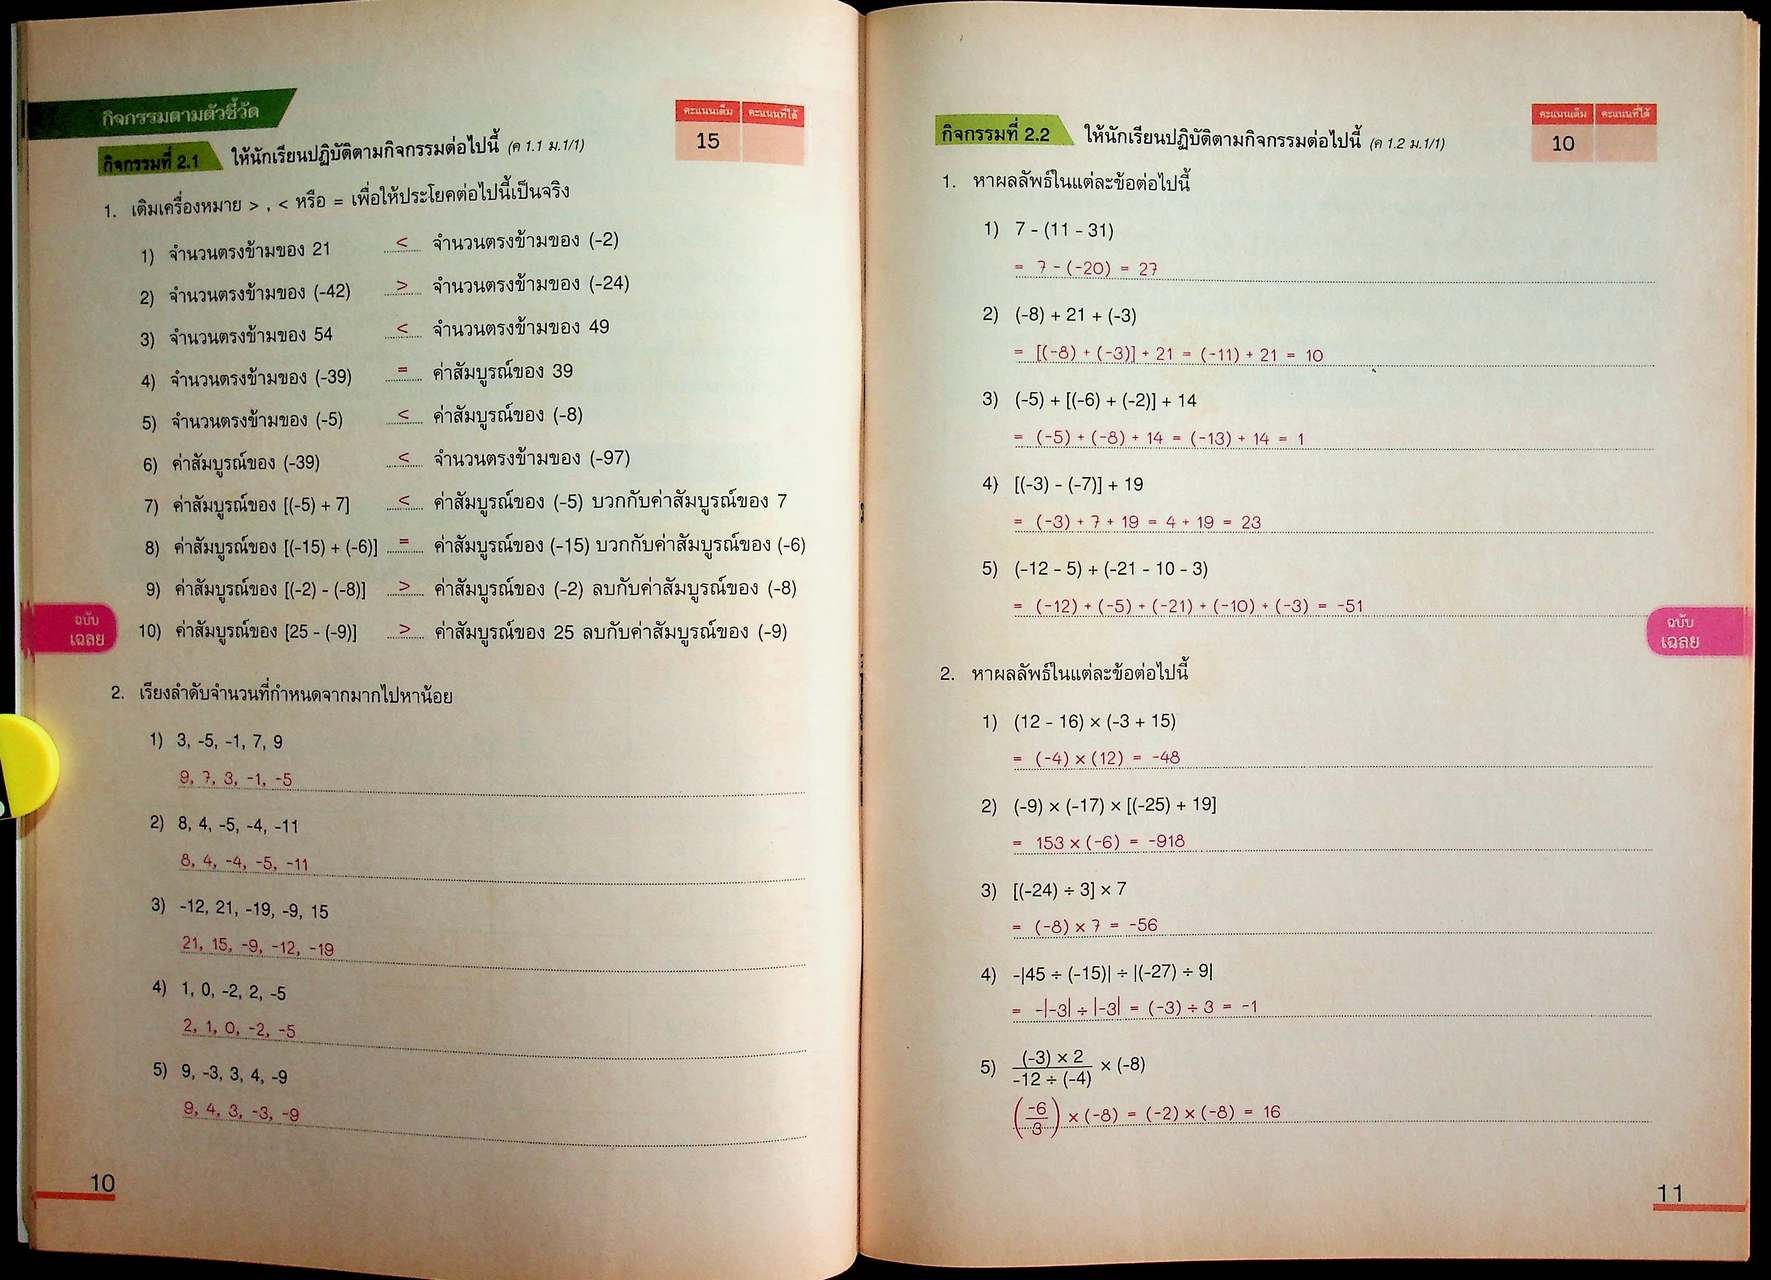 กิจกรรมตามตัวชี้วัด
กิจกรรมที่ 2.1 ให้นักเรียนปฏิบัติตามกิจกรรมต่อไปนี้ (ค 1.1 ม.1/1)
คะแนนเต็ม คะแนนที่ได้
15
1. เติมเครื่องหมาย > , < หรือ = เพื่อให้ประโยคต่อไปนี้เป็นจริง
1) จำนวนตรงข้ามของ 21 < จำนวนตรงข้ามของ (-2)
2) จำนวนตรงข้ามของ (-42) > จำนวนตรงข้ามของ (-24)
3) จำนวนตรงข้ามของ 54 < จำนวนตรงข้ามของ 49
4) จำนวนตรงข้ามของ (-39) = ค่าสัมบูรณ์ของ 39
5) จำนวนตรงข้ามของ (-5) < ค่าสัมบูรณ์ของ (-8)
6) ค่าสัมบูรณ์ของ (-39) < จำนวนตรงข้ามของ (-97)
7) ค่าสัมบูรณ์ของ [(-5) + 7] < ค่าสัมบูรณ์ของ (-5) บวกกับค่าสัมบูรณ์ของ 7
8) ค่าสัมบูรณ์ของ [(-15) + (-6)] = ค่าสัมบูรณ์ของ (-15) บวกกับค่าสัมบูรณ์ของ (-6)
9) ค่าสัมบูรณ์ของ [(-2) - (-8)] > ค่าสัมบูรณ์ของ (-2) ลบกับค่าสัมบูรณ์ของ (-8)
10) ค่าสัมบูรณ์ของ [25 - (-9)] > ค่าสัมบูรณ์ของ 25 ลบกับค่าสัมบูรณ์ของ (-9)
ฉบับ
เฉลย
2. เรียงลำดับจำนวนที่กำหนดจากมากไปหาน้อย
1) 3, -5, -1, 7, 9
9, 7, 3, -1, -5
2) 8, 4, -5, -4, -11
8, 4, -4, -5, -11
3) -12, 21, -19, -9, 15
21, 15, -9, -12, -19
4) 1, 0, -2, 2, -5
2, 1, 0, -2, -5
5) 9, -3, 3, 4, -9
9, 4, 3, -3, -9
10
กิจกรรมที่ 2.2 ให้นักเรียนปฏิบัติตามกิจกรรมต่อไปนี้ (ค 1.2 ม.1/1)
คะแนนเต็ม คะแนนที่ได้
10
1. หาผลลัพธ์ในแต่ละข้อต่อไปนี้
1) 7 - (11 - 31)
= 7 - (-20) = 27
2) (-8) + 21 + (-3)
= [(-8) + (-3)] + 21 = (-11) + 21 = 10
3) (-5) + [(-6) + (-2)] + 14
= (-5) + (-8) + 14 = (-13) + 14 = 1
4) [(-3) - (-7)] + 19
= (-3) + 7 + 19 = 4 + 19 = 23
5) (-12 - 5) + (-21 - 10 - 3)
= (-12) + (-5) + (-21) + (-10) + (-3) = -51
ฉบับ
เฉลย
2. หาผลลัพธ์ในแต่ละข้อต่อไปนี้
1) (12 - 16) × (-3 + 15)
= (-4) × (12) = -48
2) (-9) × (-17) × [(-25) + 19]
= 153 × (-6) = -918
3) [(-24) ÷ 3] × 7
= (-8) × 7 = -56
4) -|45 ÷ (-15)| ÷ |(-27) ÷ 9|
= -|-3| ÷ |-3| = (-3) ÷ 3 = -1
5) (-3) × 2 / -12 ÷ (-4) × (-8)
(-6/3) × (-8) = (-2) × (-8) = 16
11